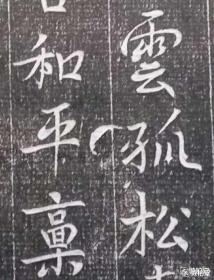 雲孤松
和平稟